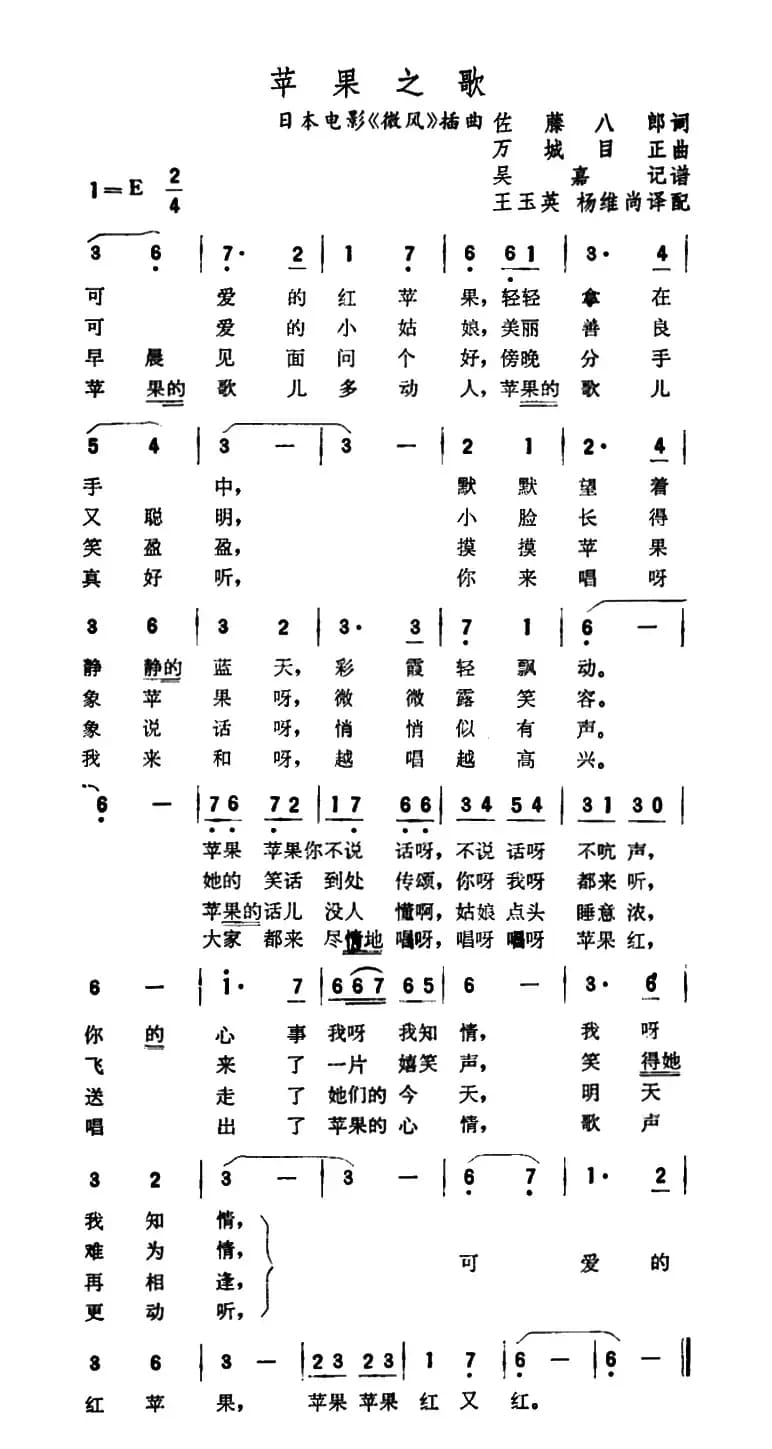 苹果之歌
日本电影《微风》插曲 佐藤八郎词
万城目正曲
吴嘉记谱
1=E 2/4 王玉英 杨维尚译配
3 6 | 7· 2 | 1 7 | 6 6 1 | 3· 4 |
可爱的红苹果,轻轻拿在
可爱的小姑娘,美丽善良
早晨见面问个好,傍晚分手
苹果的歌儿多动人,苹果的歌儿
5 4 | 3 — | 3 — | 2 1 | 2· 4 |
手中, 默默望着
又聪明, 小脸长得
笑盈盈, 摸摸苹果
真好听, 你来唱呀
3 6 | 3 2 | 3· 3 | 7 1 | 6 — |
静静的蓝天,彩霞轻飘动。
象苹果呀,微微露笑容。
象说话呀,悄悄似有声。
我来和呀,越唱越高兴。
6 — | 7 6 7 2 | 1 7 6 6 | 3 4 5 4 | 3 1 3 0 |
苹果 苹果你不说 话呀,不说话呀 不吭声,
她的 笑话 到处 传颂,你呀我呀 都来听,
苹果的话儿 没人 懂啊,姑娘点头 睡意浓,
大家 都来 尽情地 唱呀,唱呀 唱呀 苹果红,
6 — | i· 7 | 6 6 7 6 5 | 6 — | 3· 6 |
你的心事我呀 我知情, 我呀
飞来了一片 嬉笑声, 笑得她
送走了她们的 今天, 明天
唱出了苹果的心情, 歌声
3 2 | 3 — | 3 — | 6 7 | 1· 2 |
我知情,
难为情,
可爱的
再相逢,
更动听,
3 6 | 3 — | 2 3 2 3 | 1 7 | 6 — | 6 — ||
红苹果, 苹果 苹果 红又红。